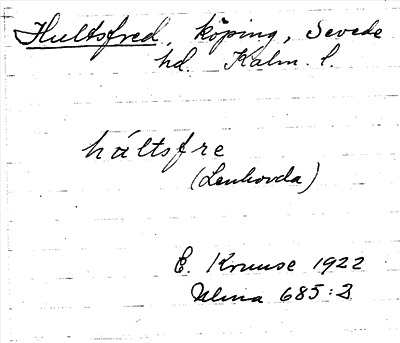 Hultsfred, köping, Sevede
hd. Kalm. l.
háltsfre
(Lenhovda)
E. Kruuse 1922
Ulma 685:2